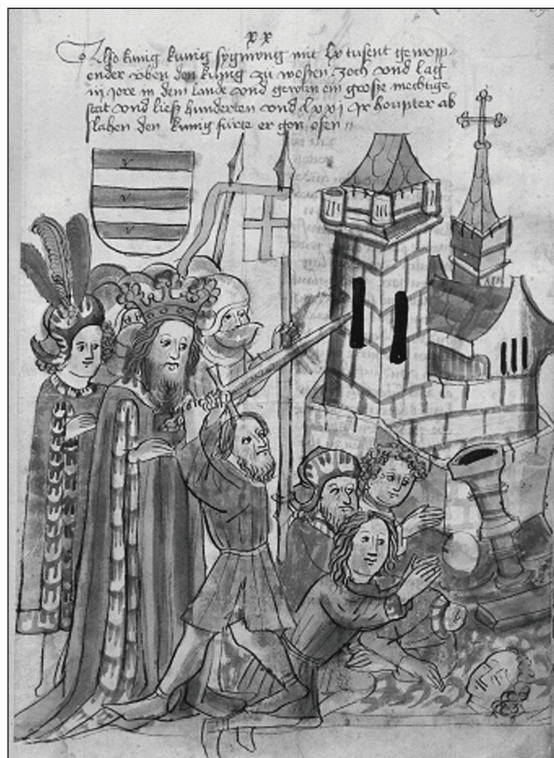 xx
Also kunig kunig sygmong mit lx tusent gewopp-
ender oben den kunig zu wossen zoch vnd lag
iij jore in dem lande vnd gewan ein grosse mechtige
stat vnd ließ hunderten vnd lxxi Ir houpter ab
slahen den kunig fürte er gon ofen
v
v
v